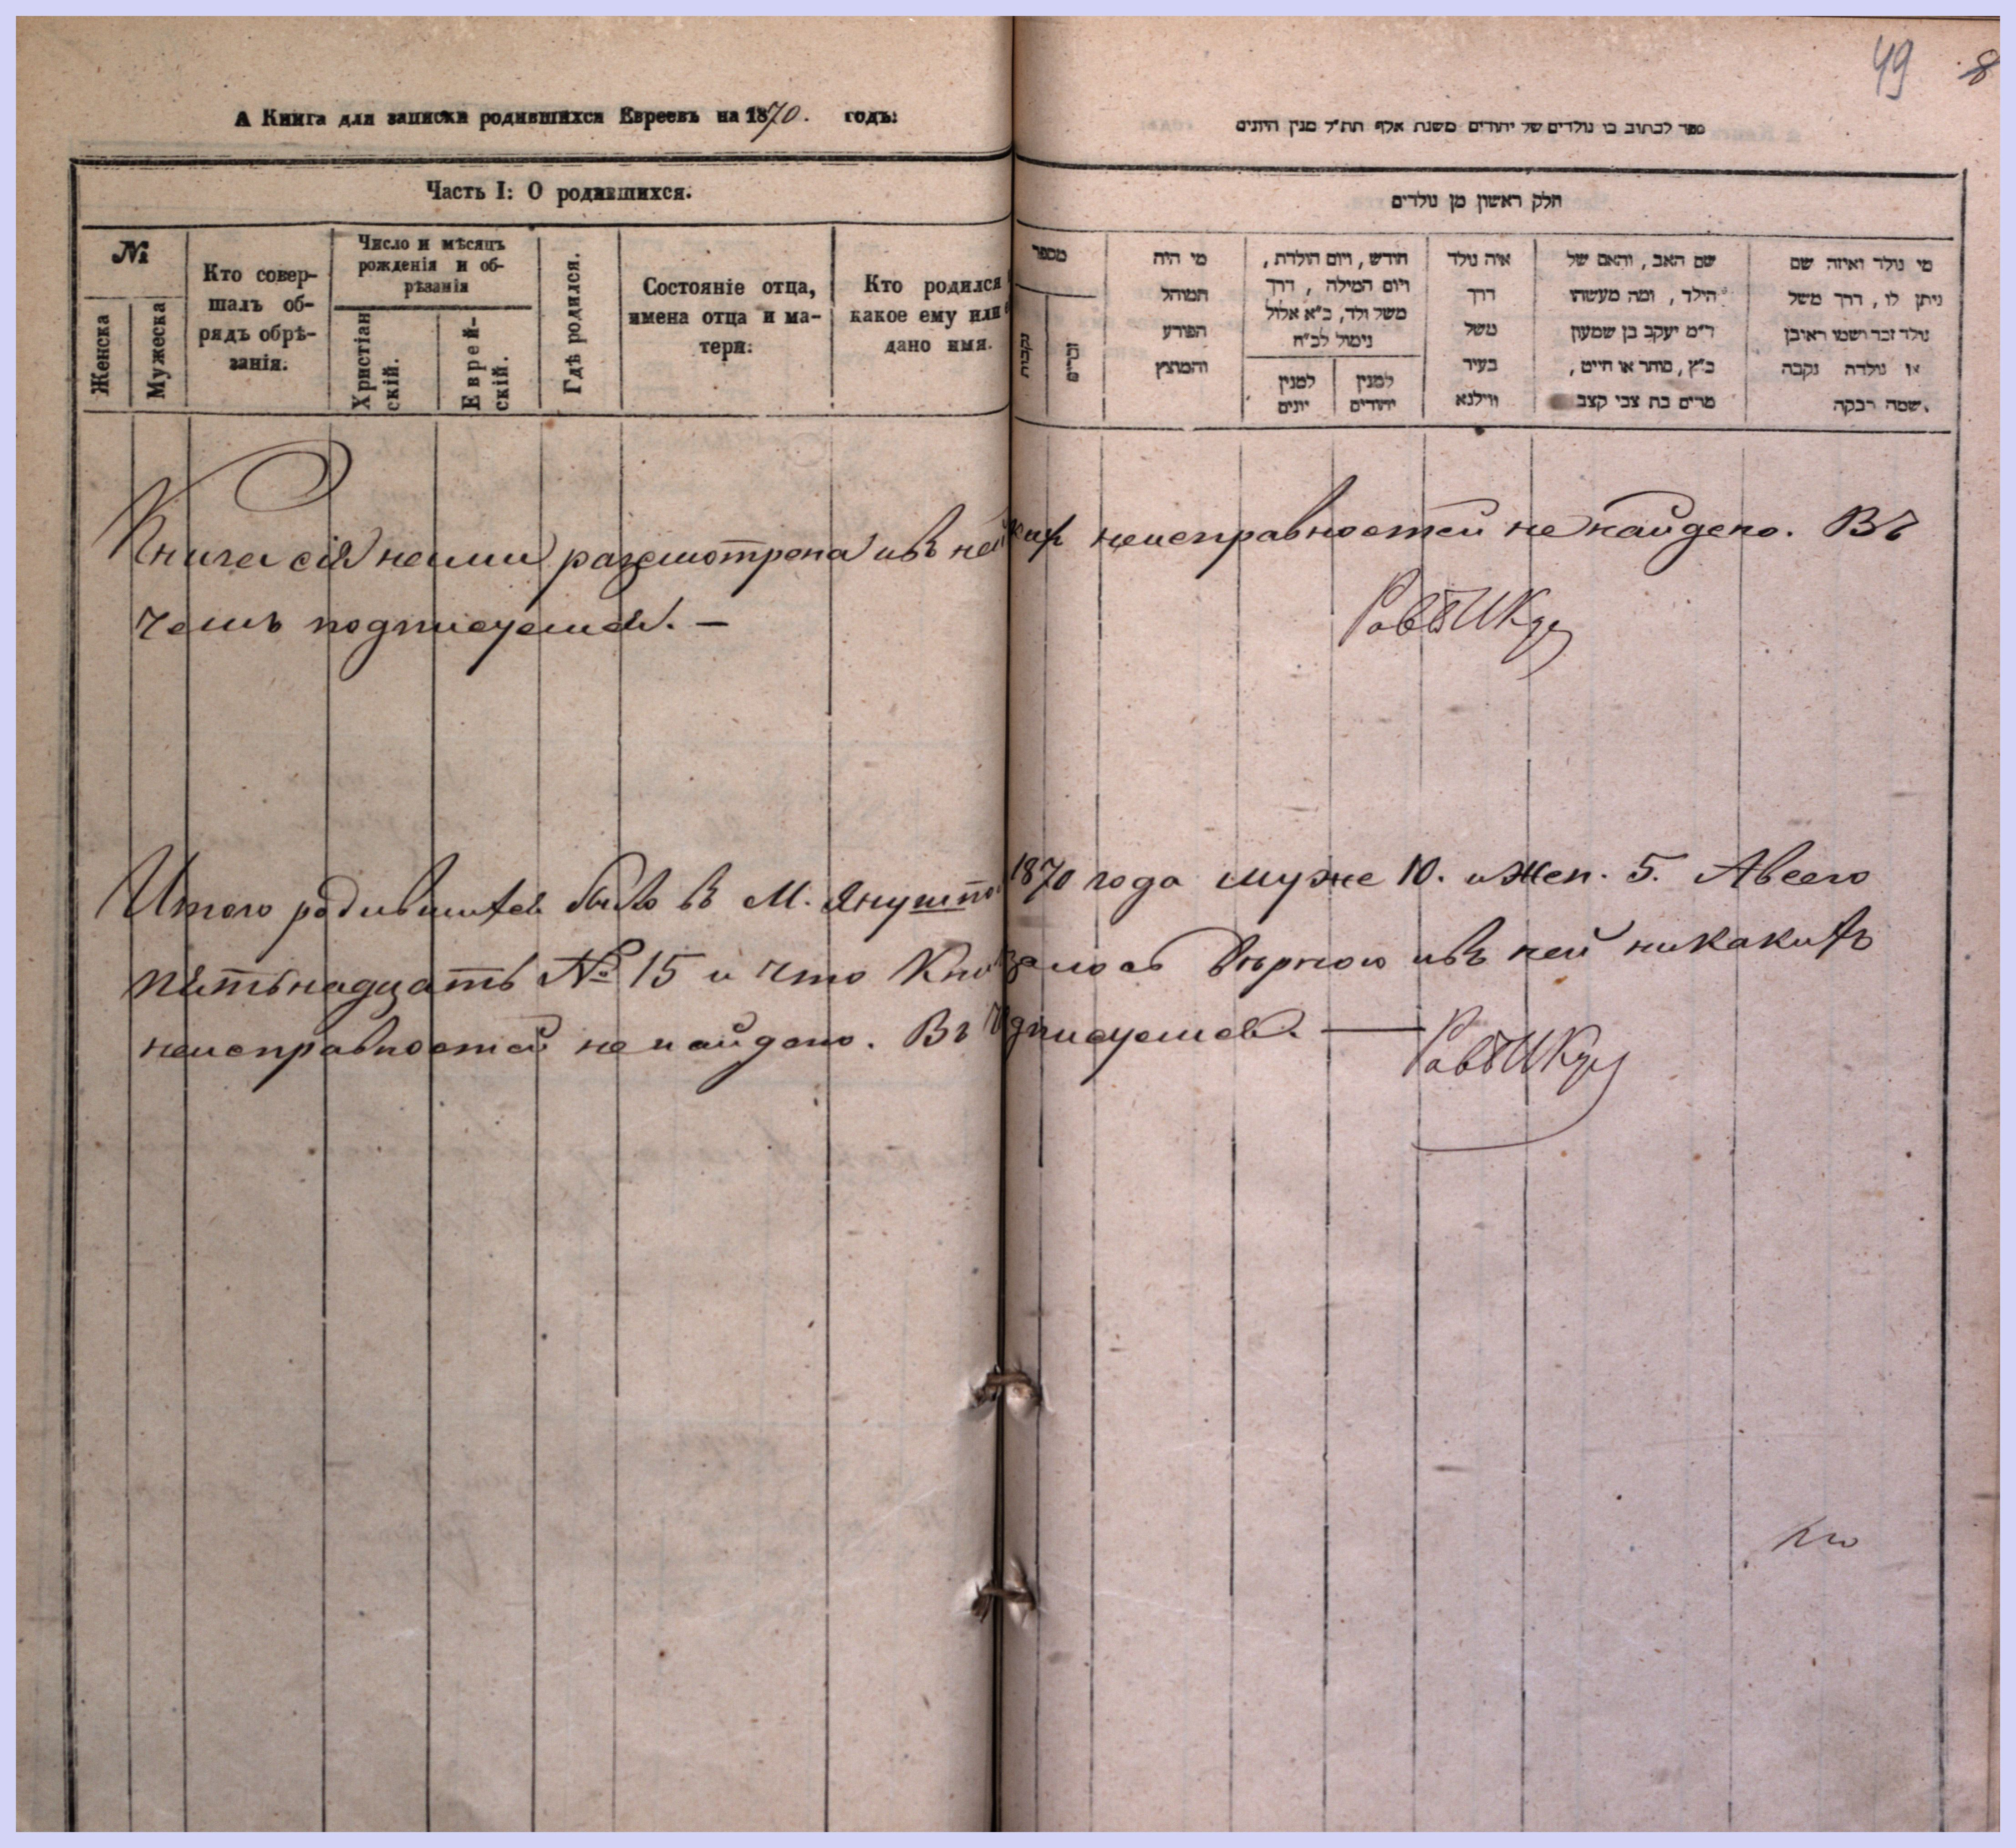 49 8
А Книга для записки родившихся Евреевъ на 1870. годъ:
Часть I: О родившихся.
№
Женска
Мужеска
Кто совер-
шалъ об-
рядъ обрѣ-
занія.
Число и мѣсяцъ
рожденія и об-
рѣзанія
Христіан
скій.
Еврей-
скій.
Гдѣ родился.
Состояніе отца,
имена отца и ма-
тери.
Кто родился
какое ему или
дано имя.
ספר לכתוב בו נולדים של יהודים משנת אלף תת״ל מנין היונים
חלק ראשון מן נולדים
מספר
נקבות
זכרים
מי היה
המוהל
הפורע
והמוצץ
חודש, ויום הולדת,
ויום המילה, דרך
משל ולד, כ״א אלול
נימול לכ״ח
למנין
יהודים
למנין
יונים
איה נולד
דרך
משל
בעיר
ווילנא
שם האב, והאם של
הילד, ומה מעשהו
ד״מ יעקב בן שמעון
כ״ץ, סוחר או חייט,
מרים בת צבי קצב
מי נולד ואיזה שם
ניתן לו, דרך משל
נולד זכר ושמו ראובן
או נולדה נקבה
שמה רבקה.
Книга сія нами разсмотрена и въ ней неисправностей не найдено. Въ
чемъ подписуемся. —
Итого родившихся было въ М. 1870 года муже 10. и Жен. 5. А всего
пятьнадцать № 15 и что вѣрною и въ ней никакихъ
неисправностей не найдено. Въ